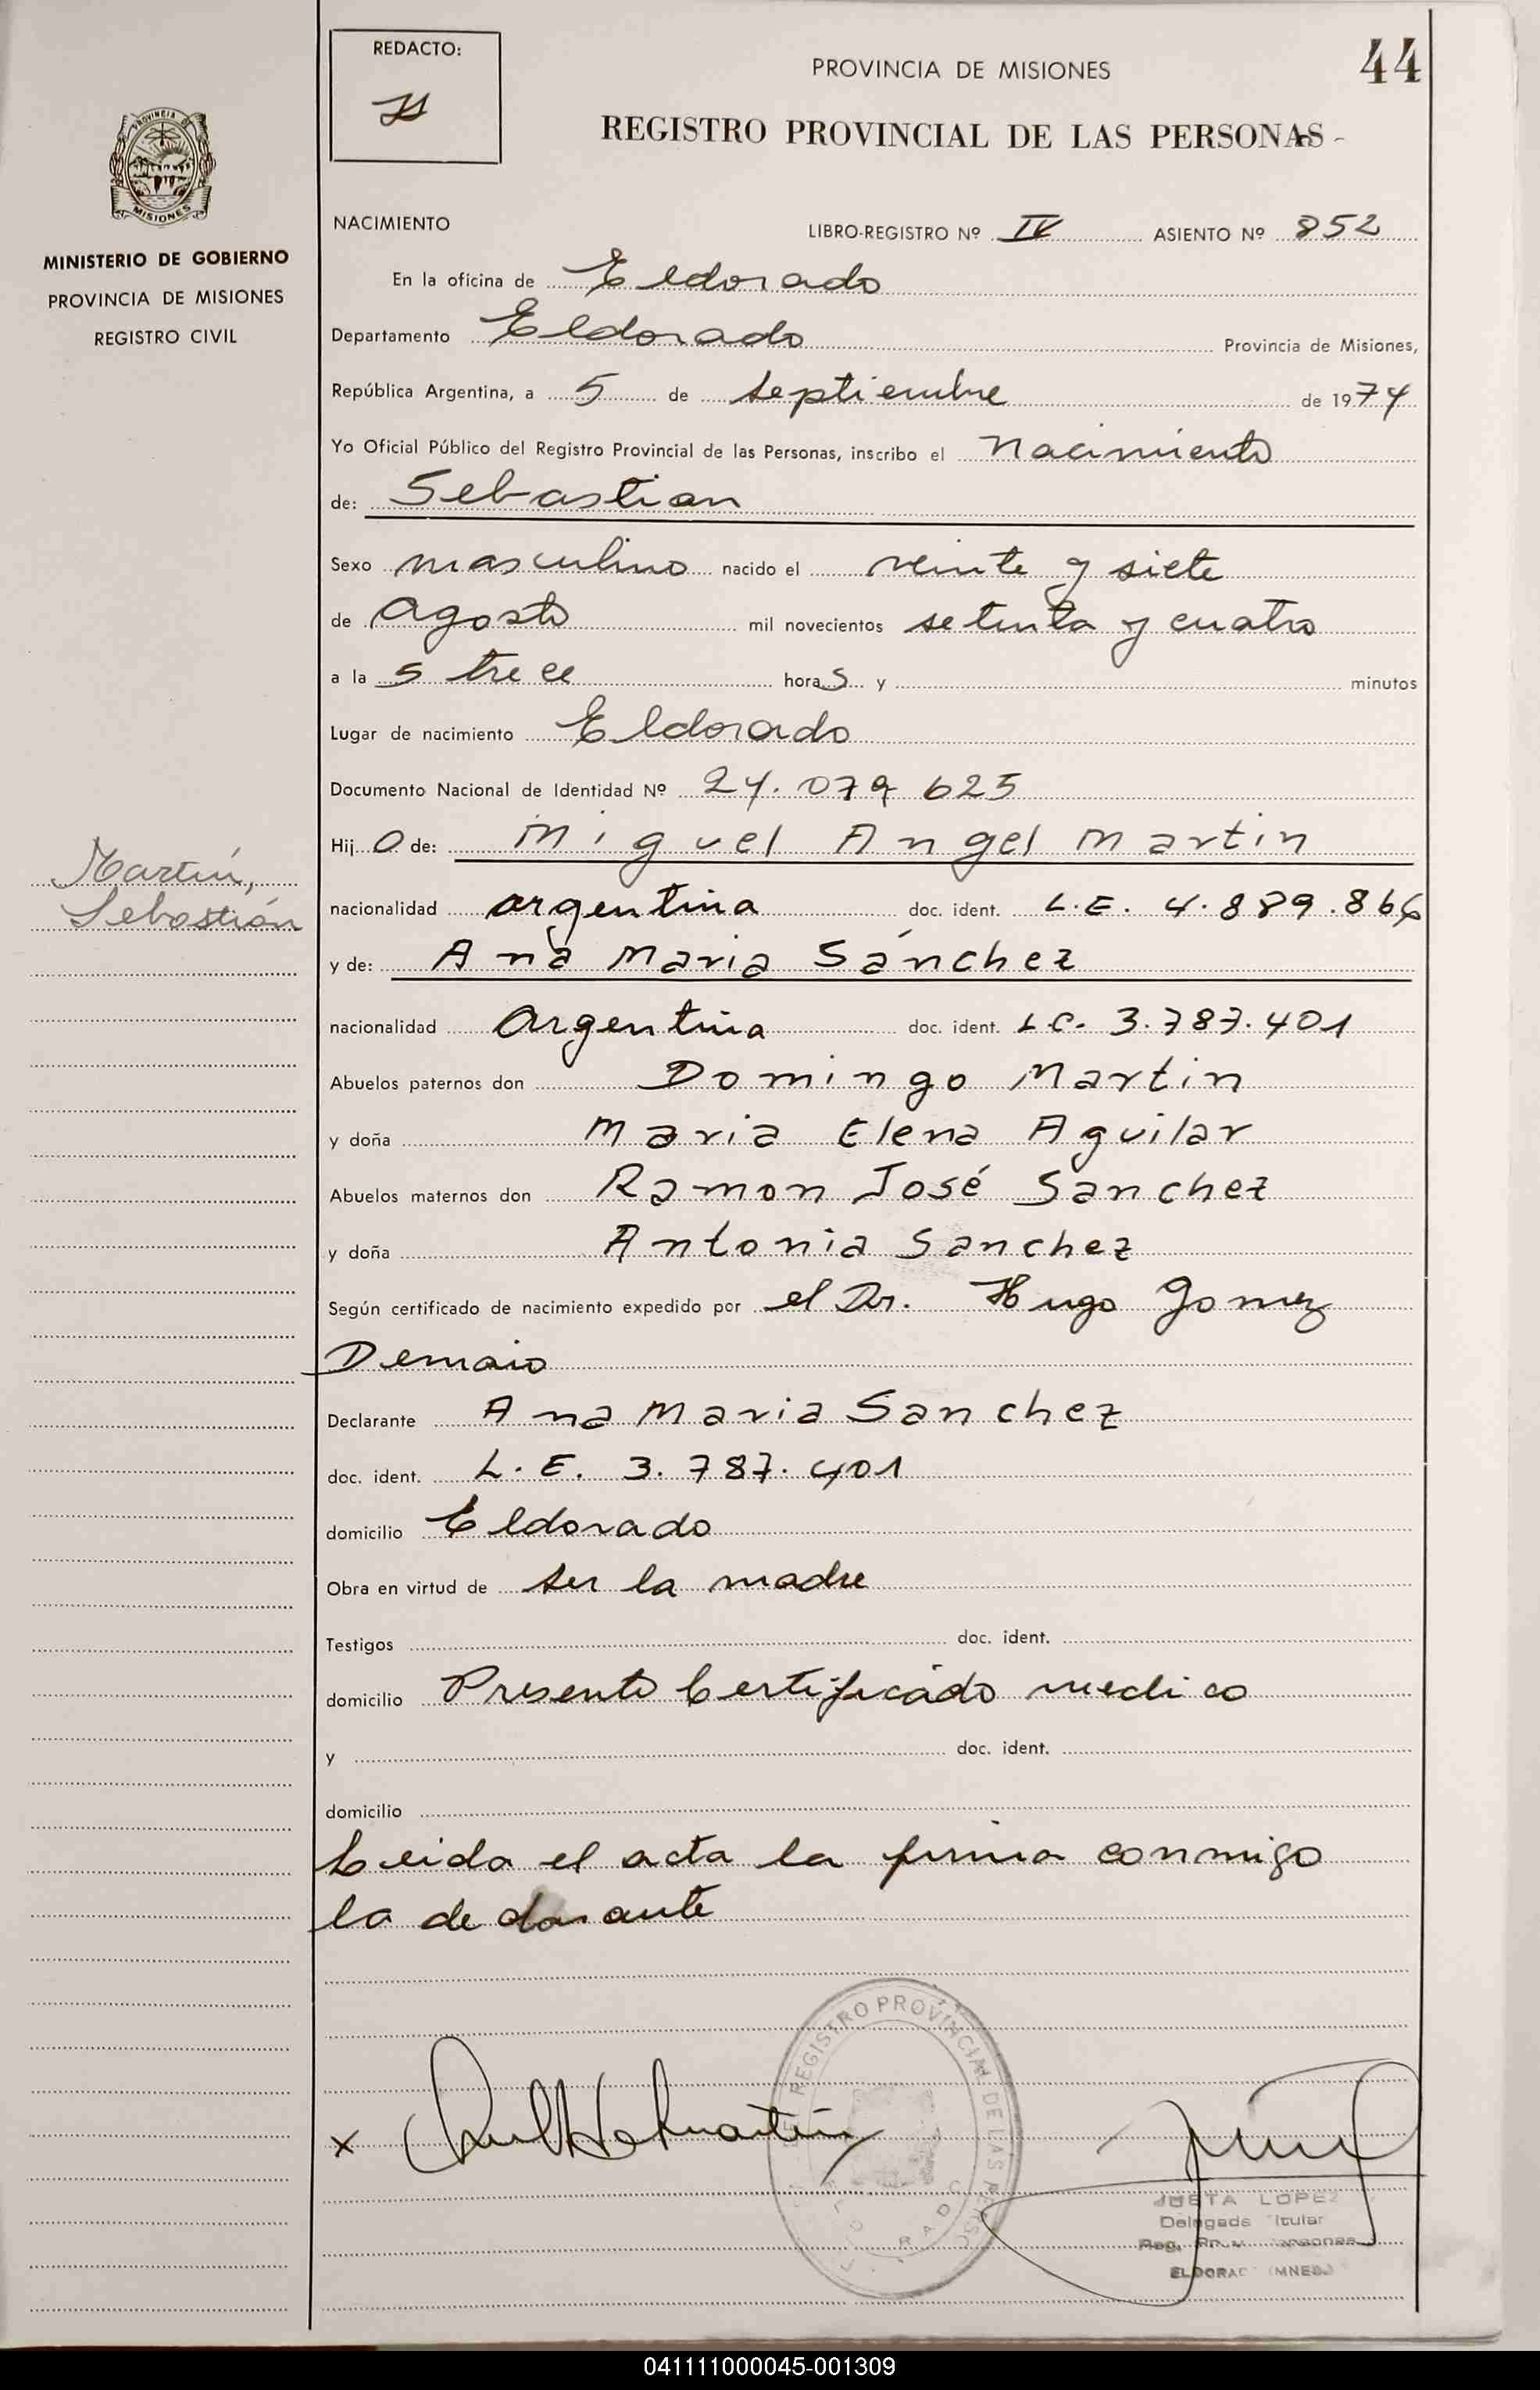 REDACTO:
PROVINCIA DE MISIONES
44
REGISTRO PROVINCIAL DE LAS PERSONAS
PROVINCIA DE
MISIONES
MINISTERIO DE GOBIERNO
PROVINCIA DE MISIONES
REGISTRO CIVIL
NACIMIENTO
LIBRO-REGISTRO Nº IV ASIENTO Nº 852
En la oficina de Eldorado
Departamento Eldorado Provincia de Misiones,
República Argentina, a 5 de septiembre de 1974
Yo Oficial Público del Registro Provincial de las Personas, inscribo el Nacimiento
de: Sebastian
Sexo masculino nacido el veinte y siete
de agosto mil novecientos setenta y cuatro
a las trece horas y minutos
Lugar de nacimiento Eldorado
Documento Nacional de Identidad Nº 24.079 625
Hijo de: Miguel Angel Martin
Martín,
Sebastián
nacionalidad argentina doc. ident. L.E. 4.889.866
y de: Ana Maria Sánchez
nacionalidad argentina doc. ident. L.C. 3.787.401
Abuelos paternos don Domingo Martin
y doña Maria Elena Aguilar
Abuelos maternos don Ramon José Sanchez
y doña Antonia Sanchez
Según certificado de nacimiento expedido por el Dr. Hugo Gomez
Demaio
Declarante Ana Maria Sanchez
doc. ident. L.E. 3.787.401
domicilio Eldorado
Obra en virtud de ser la madre
Testigos doc. ident.
domicilio Presento Certificado medico
y doc. ident.
domicilio
Leida el acta la firma conmigo
la declarante
REGISTRO PROVINCIAL DE LAS
x
JUSTA LOPEZ
041111000045-001309